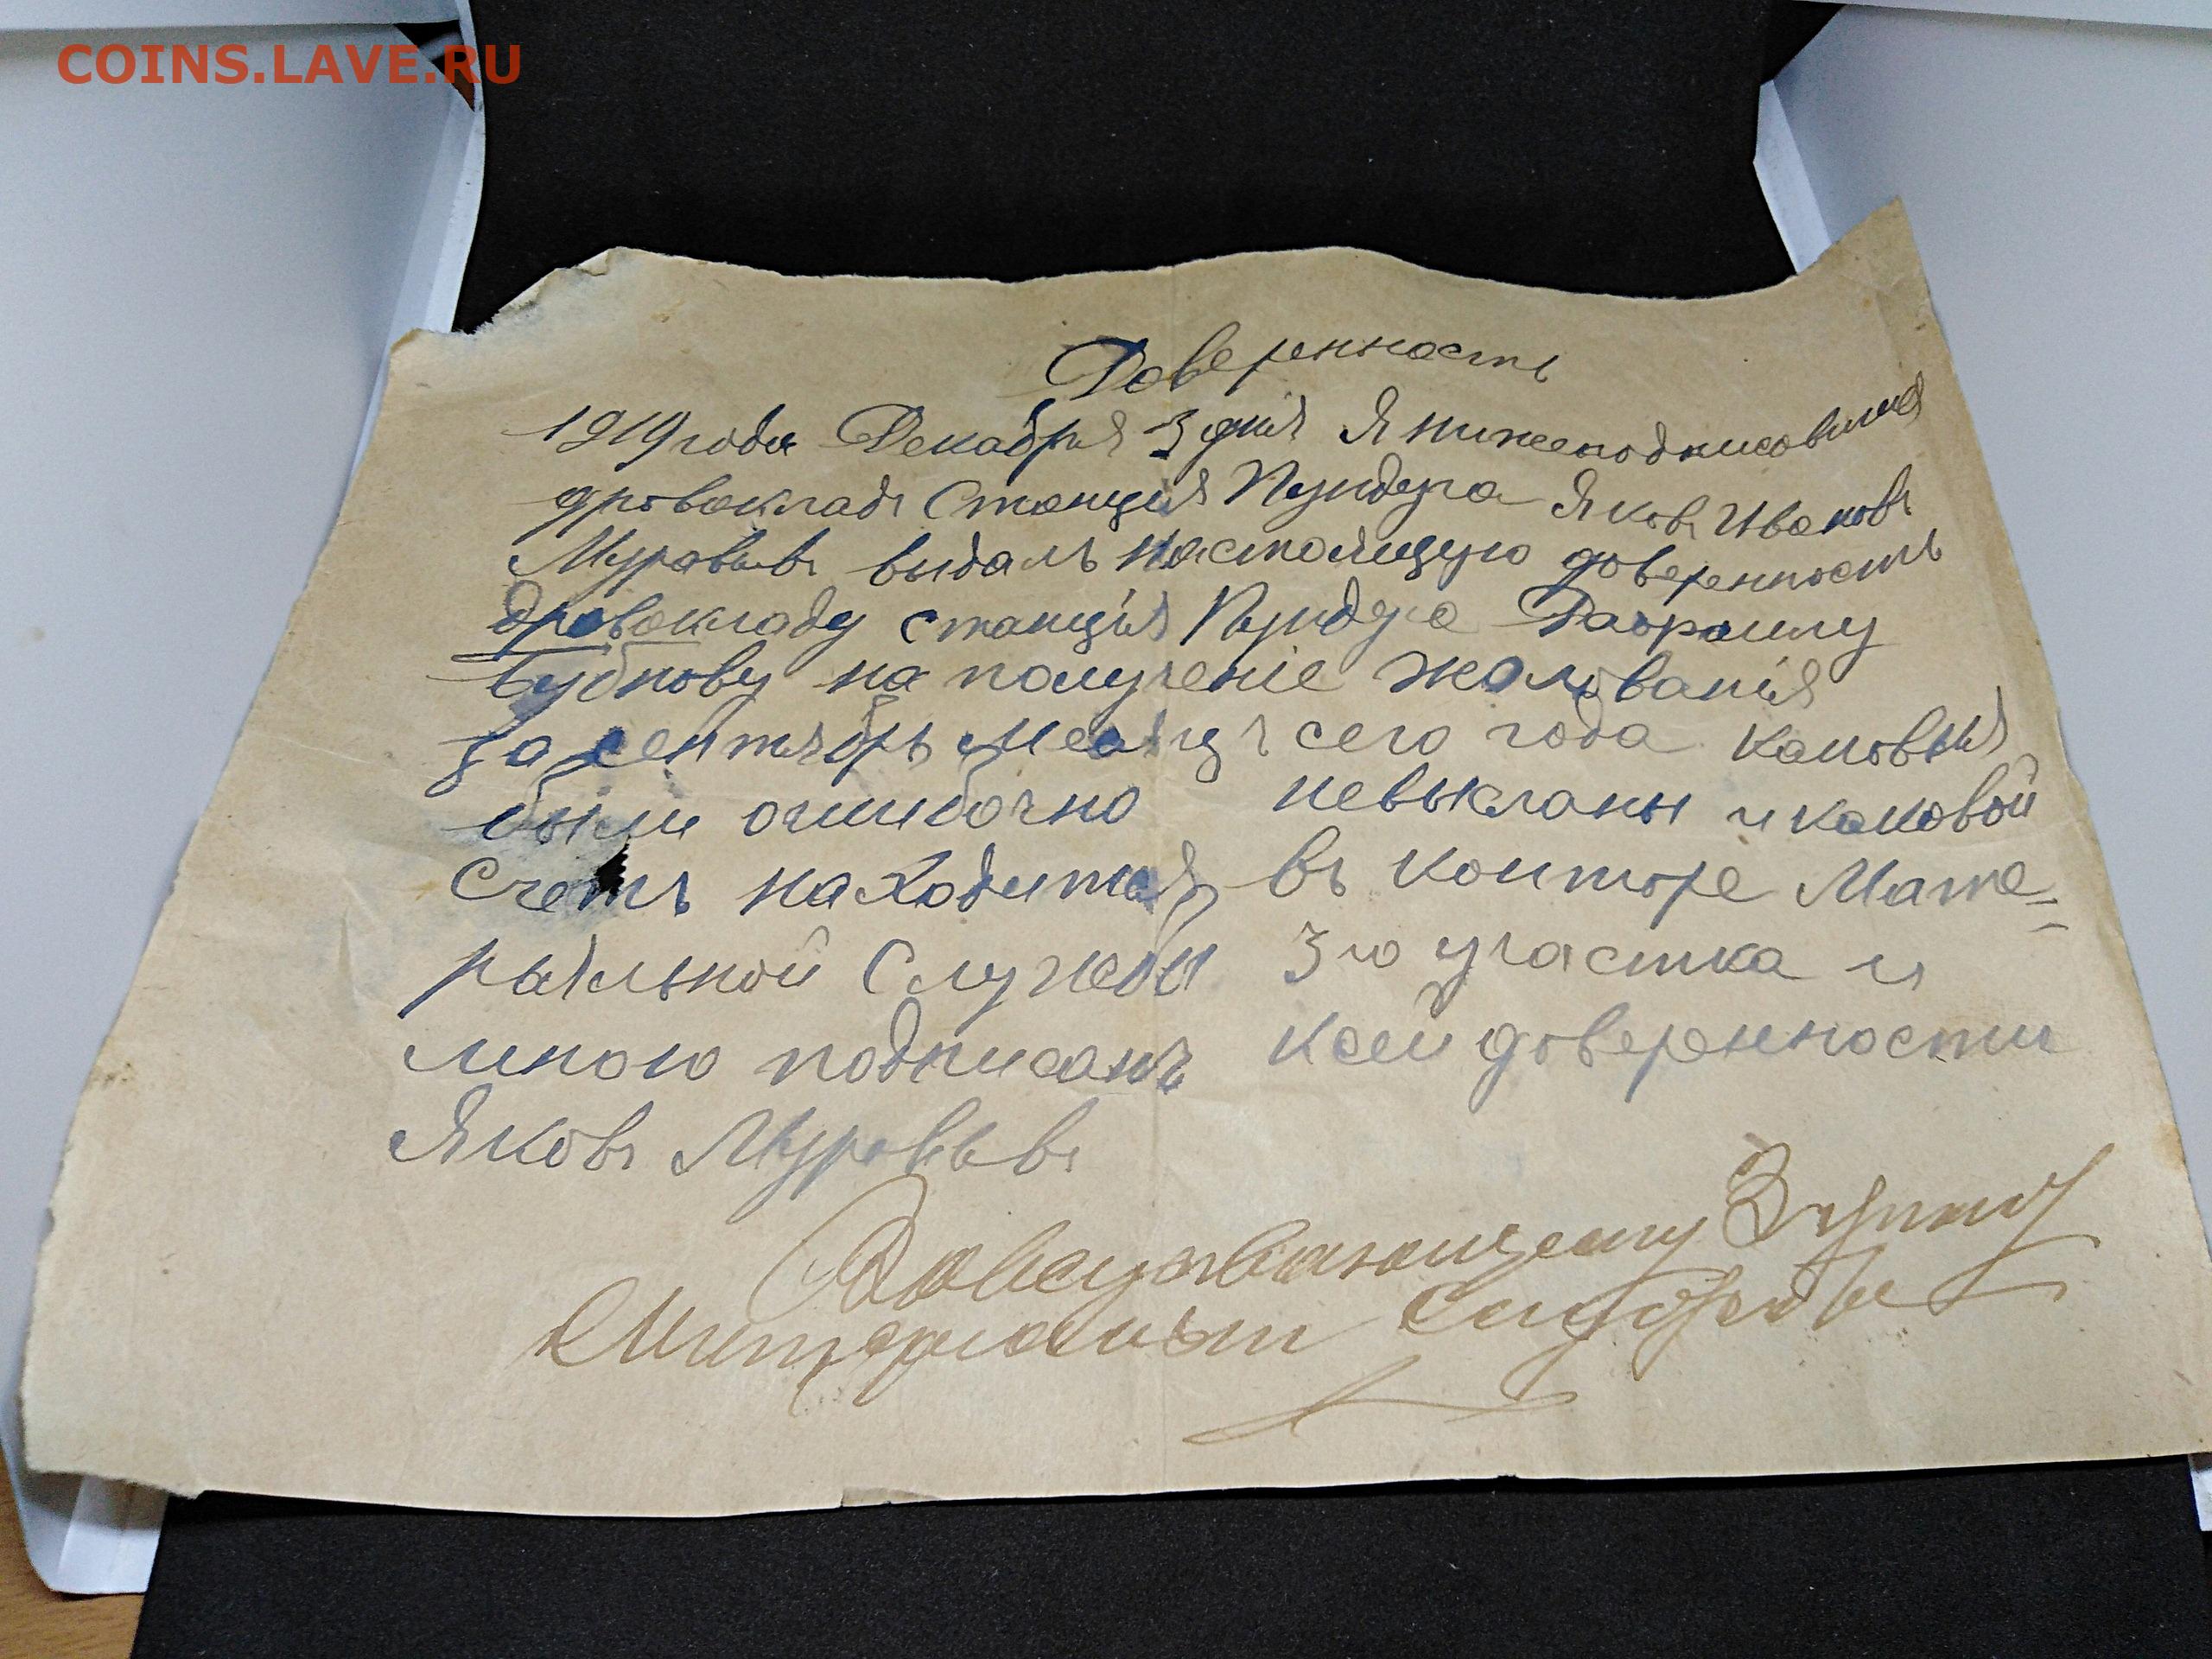 COINS.LAVE.RU
Доверенность
1919 года Декабря 3 дня Я нижеподписовшия
дровокладъ Станція Пундуга Яковъ Ивановъ
Муравьвъ выдалъ настоящую доверенность
дровокладу станція Пундуга Гавраилу
Бубнову на полученіе жалованія
за сентябрь месяцъ сего года каковыя
были ошибочно невыкланы и каковой
счетъ находится въ конторе Мате=
рьяльной Службы 3го участка и
мною подписанъ ксей доверенности
Яковъ Муравьвъ